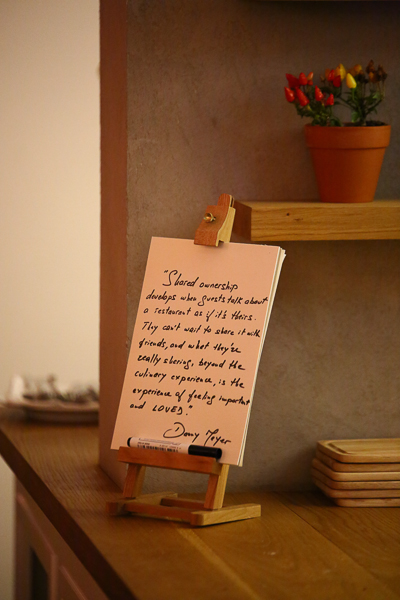 "Shared ownership
develops when guests talk about
a restaurant as if it's theirs.
They can't wait to share it with
friends, and what they're
really sharing, beyond the
culinary experience, is the
experience of feeling important
and LOVED."
Danny Meyer